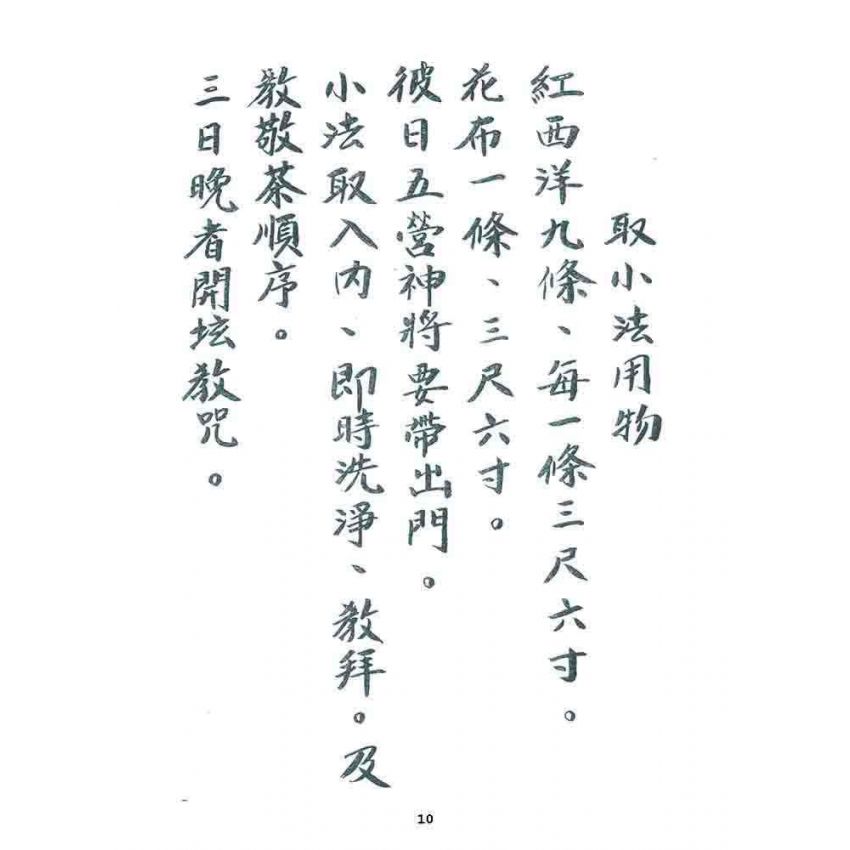 取小法用物
紅西洋九條、每一條三尺六寸。
花布一條、三尺六寸。
彼日五營神將要帶出門。
小法取入內、即時洗淨、教拜。及
教敬茶順序。
三日晚者開坛教咒。
10